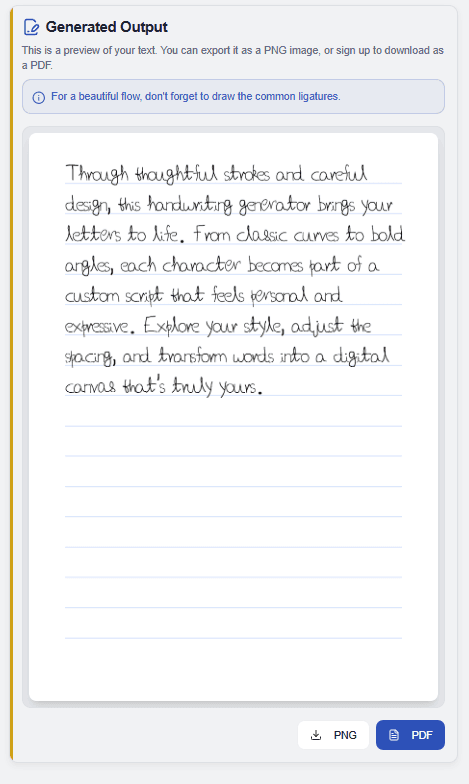 Generated Output
This is a preview of your text. You can export it as a PNG image, or sign up to download as
a PDF.
For a beautiful flow, don't forget to draw the common ligatures.
Through thoughtful strokes and careful
design, this handwriting generator brings your
letters to life. From classic curves to bold
angles, each character becomes part of a
custom script that feels personal and
expressive. Explore your style, adjust the
spacing, and transform words into a digital
canvas that's truly yours.
PNG
PDF